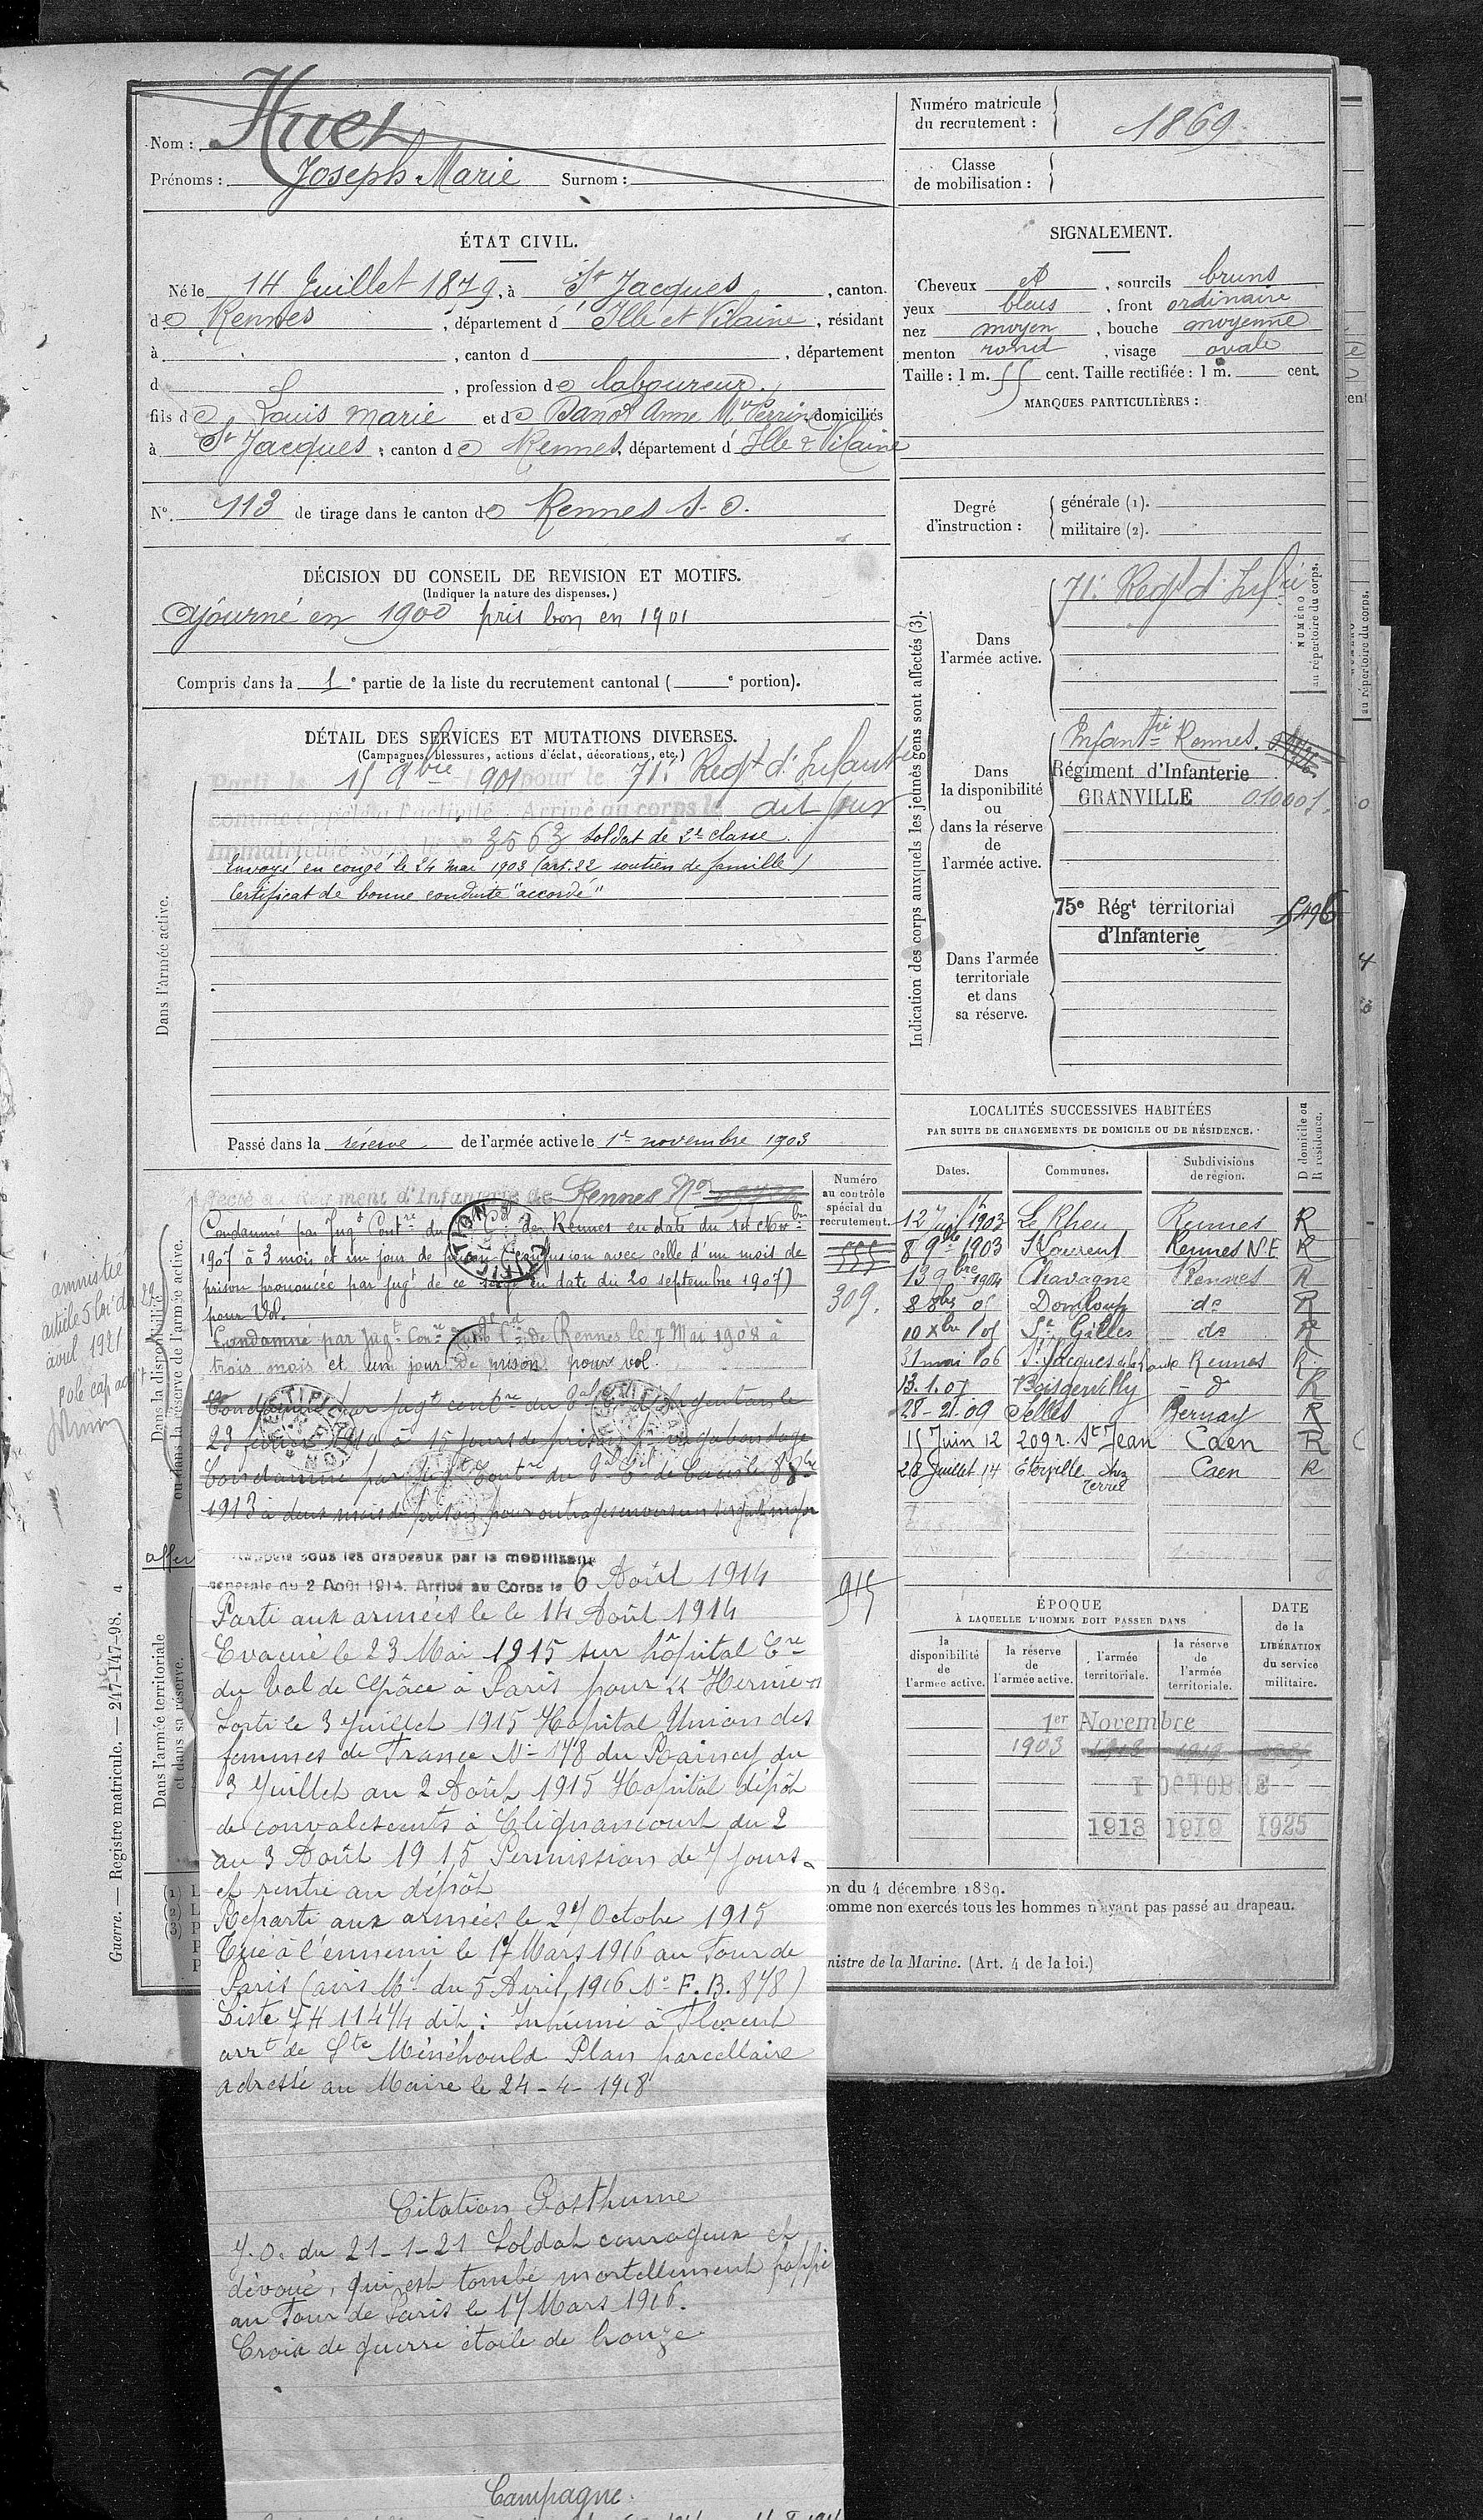 Nom : Huet
Prénoms : Joseph Marie Surnom :
Numéro matricule
du recrutement : 1869
Classe
de mobilisation :
ÉTAT CIVIL.
Né le 14 Juillet 1879, à St Jacques, canton
de Rennes, département d'Ille et Vilaine, résidant
à , canton d , département
d , profession de laboureur.
fils de Louis Marie et de Danot Anne Mie Perrin domiciliés
à St Jacques, canton de Rennes, département d'Ille & Vilaine
N° 113 de tirage dans le canton de Rennes S. O.
SIGNALEMENT.
Cheveux et , sourcils bruns
yeux bleus , front ordinaire
nez moyen , bouche moyenne
menton rond , visage ovale
Taille : 1 m. 55 cent. Taille rectifiée : 1 m. cent.
MARQUES PARTICULIÈRES :
Degré
d'instruction :
générale (1).
militaire (2).
DÉCISION DU CONSEIL DE REVISION ET MOTIFS.
(Indiquer la nature des dispenses.)
Ajourné en 1900 pris bon en 1901
Compris dans la 1e partie de la liste du recrutement cantonal ( e portion).
DÉTAIL DES SERVICES ET MUTATIONS DIVERSES.
(Campagnes, blessures, actions d'éclat, décorations, etc.)
Dans l'armée active.
Parti le 15 9bre 1901 pour le 71e Regt d'Infanterie
comme appelé à l'activité. Arrivé au corps le dit jour
Immatriculé sous le N° 3563 soldat de 2e classe.
Envoyé en congé le 24 mai 1903 (art. 22 soutien de famille)
Certificat de bonne conduite "accordé"
Passé dans la réserve de l'armée active le 1er novembre 1903
Indication des corps auxquels les jeunes gens sont affectés (3).
NUMÉRO
au répertoire du corps.
Dans
l'armée active.
71e Regt d'Infie
Dans
la disponibilité
ou
dans la réserve
de
l'armée active.
Infanterie Rennes.
Régiment d'Infanterie
GRANVILLE 010001.
Dans l'armée
territoriale
et dans
sa réserve.
75e Régt territorial
d'Infanterie
5496
Dans la disponibilité
ou dans la réserve de l'armée active.
Numéro
au contrôle
spécial du
recrutement.
555
309.
915
Régiment d'Infanterie de Rennes No
Condamné par Jugt Contre du de Rennes en date du
1907 à 3 mois et un jour de prison (confusion avec celle d'un mois de
prison prononcée par jugt de ce siège en date du 20 septembre 1907)
pour Vol.
Condamné par Jugt Conre de Rennes le 7 Mai 1908 à
trois mois et un jour de prison pour vol.
Condamné par jugt contre du d'Argentan le
23 février 1910 à 15 jours de prison pr vagabondage
Condamné par jugt Contre du de Caen le 8
1913 à deux mois de prison pour outrages envers un sergent major
amnistié
article 5 loi du 29
avril 1921
Rappelé sous les drapeaux par la mobilisation
générale du 2 Août 1914. Arrivé au Corps le 6 Août 1914
Parti aux armées le le 14 Août 1914
Evacué le 23 Mai 1915 sur hôpital Cre
du Val de Grâce à Paris pour "Hernie"
Sorti le 3 Juillet 1915 Hopital Union des
femmes de France N° 178 du Raincy du
3 Juillet au 2 Août 1915 Hopital dépôt
de convalescents à Clignancourt du 2
au 3 Août 1915 Permission de 7 jours
et rentré au dépôt
Reparti aux armées le 27 Octobre 1915
Tué à l'ennemi le 17 Mars 1916 au Four de
Paris (avis Mel du 5 Avril 1916 N° F.B. 878)
Liste 7H 11474 dit : Inhumé à Florent
arrt de Ste Ménéhould Plan parcellaire
adressé au Maire le 24-4-1918
Citation Posthume
J.O. du 21-1-21 Soldat courageux et
dévoué, qui est tombé mortellement frappé
au Four de Paris le 17 Mars 1916.
Croix de guerre étoile de bronze
Campagne.
Dans l'armée territoriale
et dans sa réserve.
LOCALITÉS SUCCESSIVES HABITÉES
PAR SUITE DE CHANGEMENTS DE DOMICILE OU DE RÉSIDENCE.
Dates. Communes. Subdivisions de région. D domicile ou R résidence.
12 Juil 1903 Le Rheu Rennes R
8 9bre 1903 St Laurent Rennes N.E R
13 9bre 1904 Chavagne Rennes R
8 8bre 05 Domloup do R
10 Xbre 05 St Gilles do R
31 mai 06 St Jacques de la Lande Rennes R
13.1.07 Boisgervilly d R
28-21-09 Selles Bernay R
15 Juin 12 209 r. St Jean Caen R
28 Juillet 14 Eterville chez Terrée Caen R
ÉPOQUE
À LAQUELLE L'HOMME DOIT PASSER DANS
la disponibilité de l'armée active.
la réserve de l'armée active.
l'armée territoriale.
la réserve de l'armée territoriale.
DATE
de la
LIBÉRATION
du service
militaire.
1er Novembre
1903
1 OCTOBRE
1913 1919 1925
on du 4 décembre 1889.
comme non exercés tous les hommes n'ayant pas passé au drapeau.
nistre de la Marine. (Art. 4 de la loi.)
Guerre. — Registre matricule. — 247-147-98.